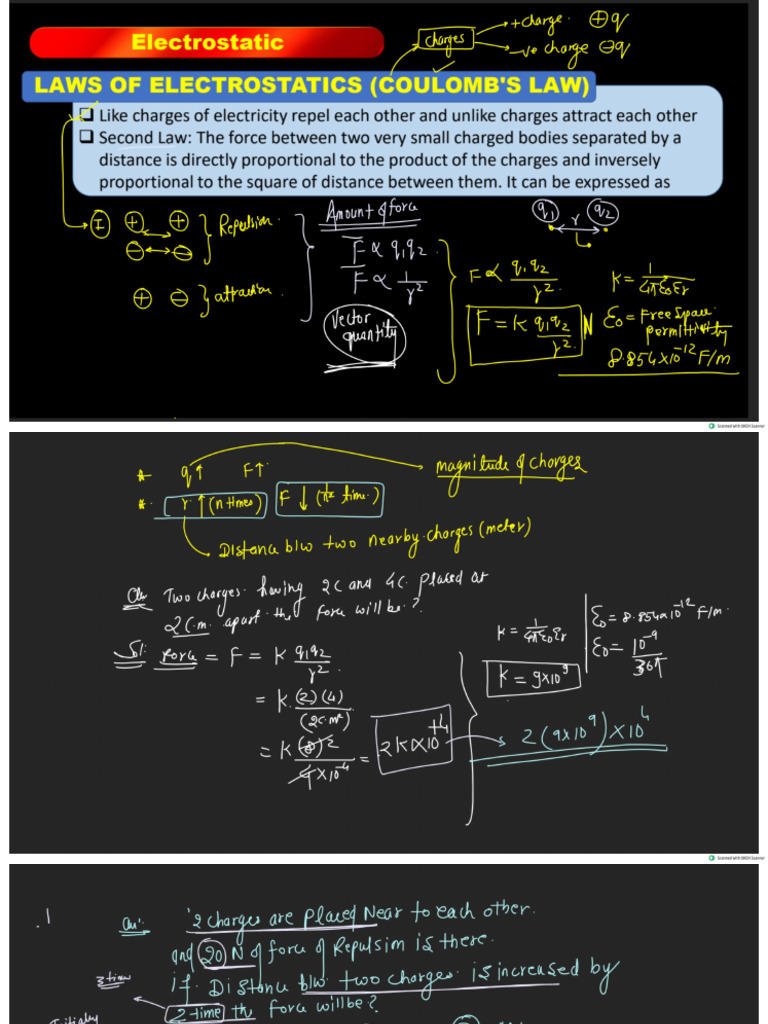 Electrostatic
charges
+charge. ⊕q
-ve charge ⊖q
LAWS OF ELECTROSTATICS (COULOMB'S LAW)
❑ Like charges of electricity repel each other and unlike charges attract each other
❑ Second Law: The force between two very small charged bodies separated by a
distance is directly proportional to the product of the charges and inversely
proportional to the square of distance between them. It can be expressed as
I ⊕ ⊕
⊖ ⊖
Repulsion.
⊕ ⊖ } attraction.
Amount of force
F ∝ q1q2
F ∝ 1/r²
Vector
quantity
q1 r q2
F ∝ q1q2/r².
F = K q1q2/r². N
K = 1/4πε0εr
ε0 = Free space
permittivity
8.854×10⁻¹² F/m
Scanned with OKEN Scanner
* q↑ F↑.
magnitude of charges
*. r↑(n times) F↓(1/n² time.)
Distance b/w two nearby charges (meter)
Que Two charges having 2C and 4C. placed at
2C.m. apart the force will be.?
Sol: Force = F = K q1q2/r².
= K.(2)(4)/(2c.m)²
= K(8)2/4×10⁻⁴ = 2K×10⁺⁴
K = 1/4πε0εr
K = 9×10⁹
ε0 = 8.854×10⁻¹² F/m.
ε0 = 10⁻⁹/36π
2(9×10⁹)×10⁴
Scanned with OKEN Scanner
.1
Que: '2 charges are placed Near to each other.
and 20 N of force of Repulsion is there.
if Distance b/w two charges is increased by
3 time
2 time the force will be?
Initially